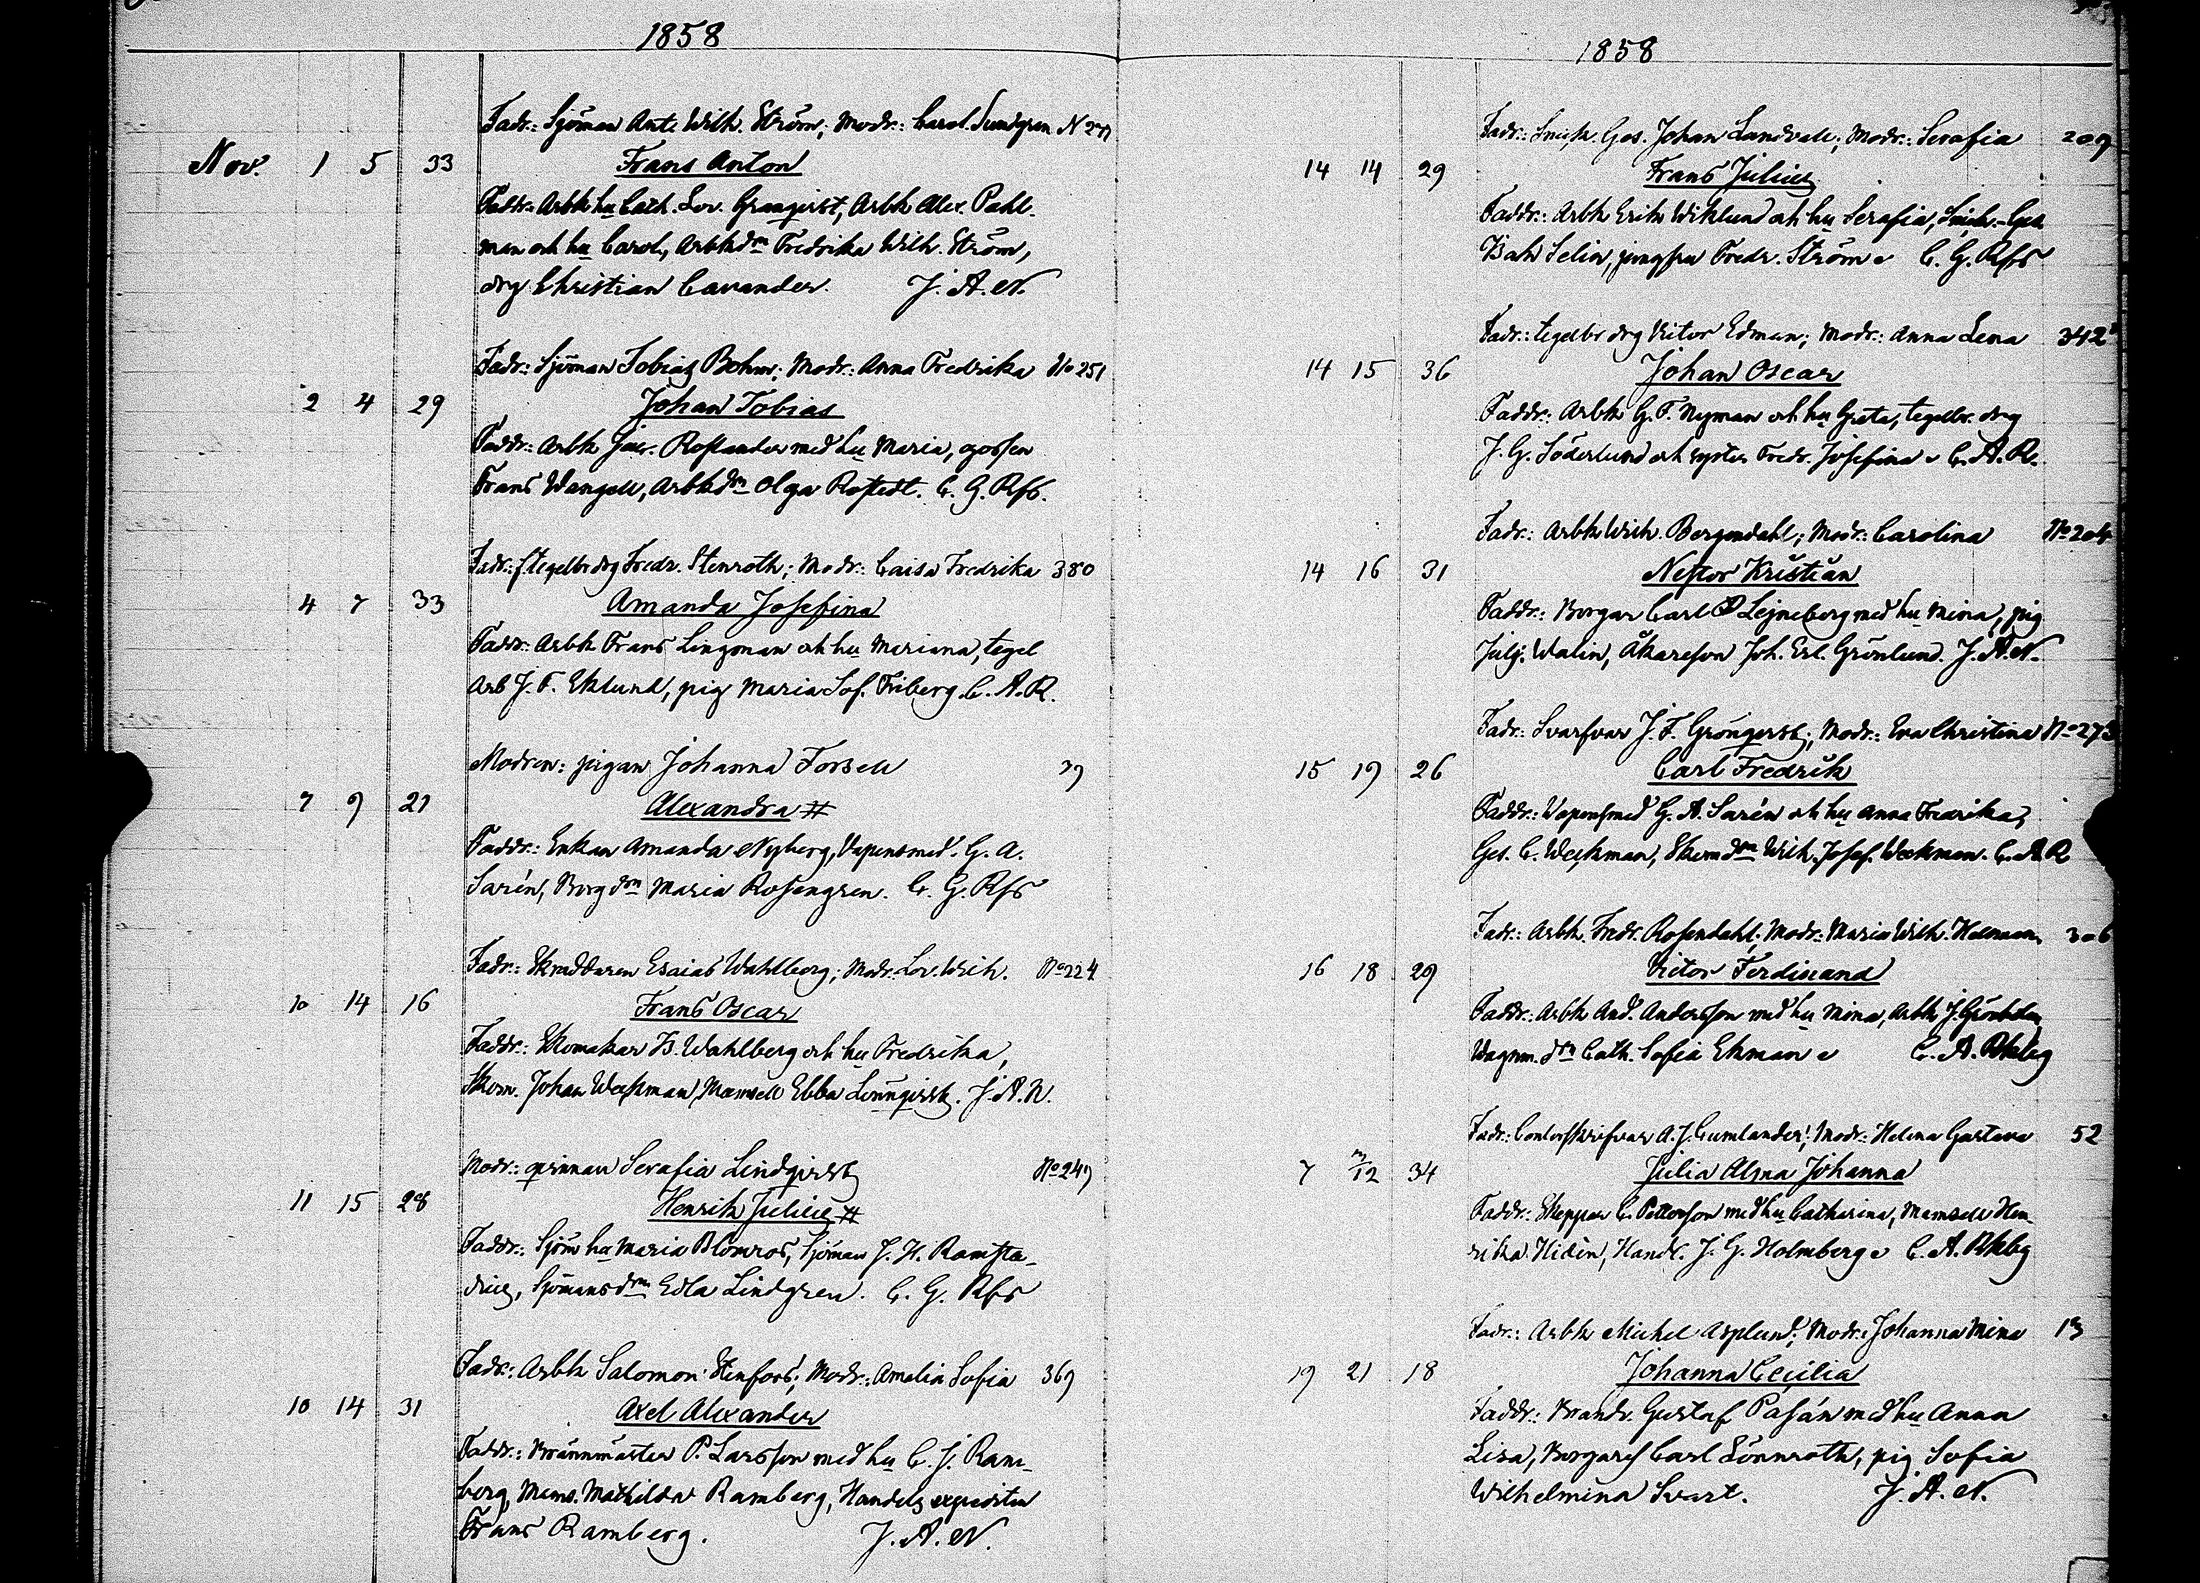 1858
Fadr: Sjöman Ant. Wilh. Ström; Modr: Carol. Sundgren N 277
Nov. 1 5 33 Frans Anton
Faddr: Arbk hu Cath. Lov. Granqvist, Arbk Alex. Pahl-
man och hu Carol., Arbk dn Fredrika Wilh. Ström,
drg Christian Cavander. J. A. N.
Fadr: Sjöman Tobias Bohm; Modr: Anna Fredrika No 251
2 4 29 Johan Tobias
Faddr: Arbk Jac. Roslander med hu Maria, gossen
Frans Wangell, Arbk dn Olga Rostedt. C. G. Rfs.
Fadr: Tegelbr drg Fredr. Stenroth; Modr: Caisa Fredrika 380
4 7 33 Amanda Josefina
Faddr: Arbk Frans Lingman och hu Mariana, tegel
arb J. F. Eklund, pig Maria Sof. Friberg. C. A. R.
Modren: pigan Johanna Forsell 39
7 9 21 Alexandra #
Faddr: Enkan Amanda Nyberg, Vapensmed. G. A.
Sarén, Borg dn Maria Rosengren. C. G. Rfs
Fadr: Skräddaren Esaias Wahlberg; Modr: Lov. Wilh. No 224
10 14 16 Frans Oscar
Faddr: Skomakar Is. Wahlberg och hu Fredrika,
Skom. Johan Weckman, Mamsell Ebba Lönnqvist. J. A. N.
Modr: qvinnan Serafia Lindqvist No 249
11 15 28 Henrik Julius #
Faddr: Sjöm hu Maria Blomros, Sjöman J. H. Ramsta-
dius, Sjömans dn Edla Lindgren. C. G. Rfs
Fadr: Arbk Salomon Stenfors; Modr: Amalia Sofia 369
10 14 31 Axel Alexander
Faddr: Brännmäster P. Larsson med hu C. J. Ram-
berg, Mams. Mathilda Ramberg, Handels expeditn
Frans Ramberg. J. A. N.
1858
Fadr: Snick. Ges. Johan Landvall; Modr: Serafia 209
14 14 29 Frans Julius
Faddr: Arbk Erik Wiklund och hu Serafia, Snick. Ges
Isak Selin, jungfru Fredr. Ström C. G. Rfs
Fadr: tegelbr drg Victor Edman; Modr: Anna Lena 342
14 15 36 Johan Oscar
Faddr: Arbk G. F. Nyman och hu Greta, tegelbr. drg
J. G. Söderlund och syster Fredr. Josefina C. A. R.
Fadr: Arbk Wilh. Bergendahl; Modr: Carolina No 204
14 16 31 Nestor Kristian
Faddr: Borgar Carl Lejneberg med hu Mina, pig
Julj. Walin, Åkareson Joh. Erl. Grönlund. J. A. N.
Fadr: Svarfvar J. F. Grönqvist; Modr: Eva Christina No 273
15 19 26 Carl Fredrik
Faddr: Vapensmed G. A. Sarén och hu Anna Fredrika,
Ges. C. Weckman, Skom dn Wilh. Josef. Weckman. C. A. R
Fadr: Arbk Fredr. Rosendahl; Modr: Maria Wilh. Holmam 306
16 18 29 Victor Ferdinand
Faddr: Arbk And. Andersson med hu Mina, Arbk J.
Wagnm. dn Cath. Sofia Ekman C. A. Rkbg
Fadr: Contorskrifvar A. J. Cumlander; Modr: Helena Gustava 52
7 12 34 Julia Alma Johanna
Faddr: Skeppar C. Petterson med hu Catharina, Mamsell Hen-
rika Hidén, Handl. J. G. Holmberg C. A. Rkbg
Fadr: Arbk Mickel Asplund; Modr: Johanna Mina 13
19 21 18 Johanna Cecilia
Faddr: Brandv. Gustaf Pasán med hu Anna
Lisa, Borgares Carl Lönnroth, pig Sofia
Wilhelmina Svart. J. A. N.